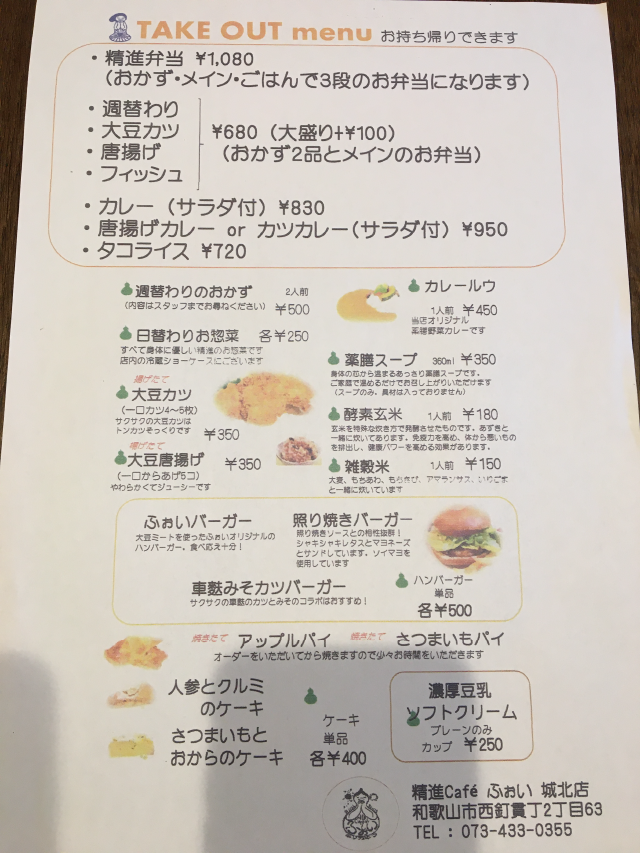 TAKE OUT menu お持ち帰りできます
・精進弁当 ¥1,080
（おかず・メイン・ごはんで3段のお弁当になります）
・週替わり
・大豆カツ
・唐揚げ
・フィッシュ
¥680（大盛り+¥100）
（おかず2品とメインのお弁当）
・カレー（サラダ付）¥830
・唐揚げカレー or カツカレー（サラダ付）¥950
・タコライス ¥720
週替わりのおかず 2人前
（内容はスタッフまでお尋ねください） ¥500
日替わりお惣菜 各¥250
すべて身体に優しい精進のお惣菜です
店内の冷蔵ショーケースにございます
揚げたて
大豆カツ
（一口カツ4〜5枚）
サクサクの大豆カツは
トンカツそっくりです ¥350
揚げたて
大豆唐揚げ ¥350
（一口からあげ5コ）
やわらかくてジューシーです
カレールウ
1人前 ¥450
当店オリジナル
薬膳野菜カレーです
薬膳スープ 360ml ¥350
身体の芯から温まるあっさり薬膳スープです。
ご家庭で温めるだけでお召し上がりいただけます
（スープのみ、具材は入っておりません）
酵素玄米 1人前 ¥180
玄米を特殊な炊き方で発酵させたものです。あずきと
一緒に炊いてあります。免疫力を高め、体から悪いもの
を排出し、健康パワーを高める効果があります。
雑穀米 1人前 ¥150
大麦、もちあわ、もちきび、アマランサス、いりごま
と一緒に炊いています
ふぉいバーガー
大豆ミートを使ったふぉいオリジナルの
ハンバーガー。食べ応え十分！
照り焼きバーガー
照り焼きソースとの相性抜群！
シャキシャキレタスとマヨネーズ
とサンドしています。ソイマヨを
使用しています
車麩みそカツバーガー
サクサクの車麩のカツとみそのコラボはおすすめ！
ハンバーガー
単品
各¥500
焼きたて アップルパイ 焼きたて さつまいもパイ
オーダーをいただいてから焼きますので少々お時間をいただきます
人参とクルミ
のケーキ
さつまいもと
おからのケーキ
ケーキ
単品
各¥400
濃厚豆乳
ソフトクリーム
プレーンのみ
カップ ¥250
精進Café ふぉい 城北店
和歌山市西釘貫丁2丁目63
TEL：073-433-0355